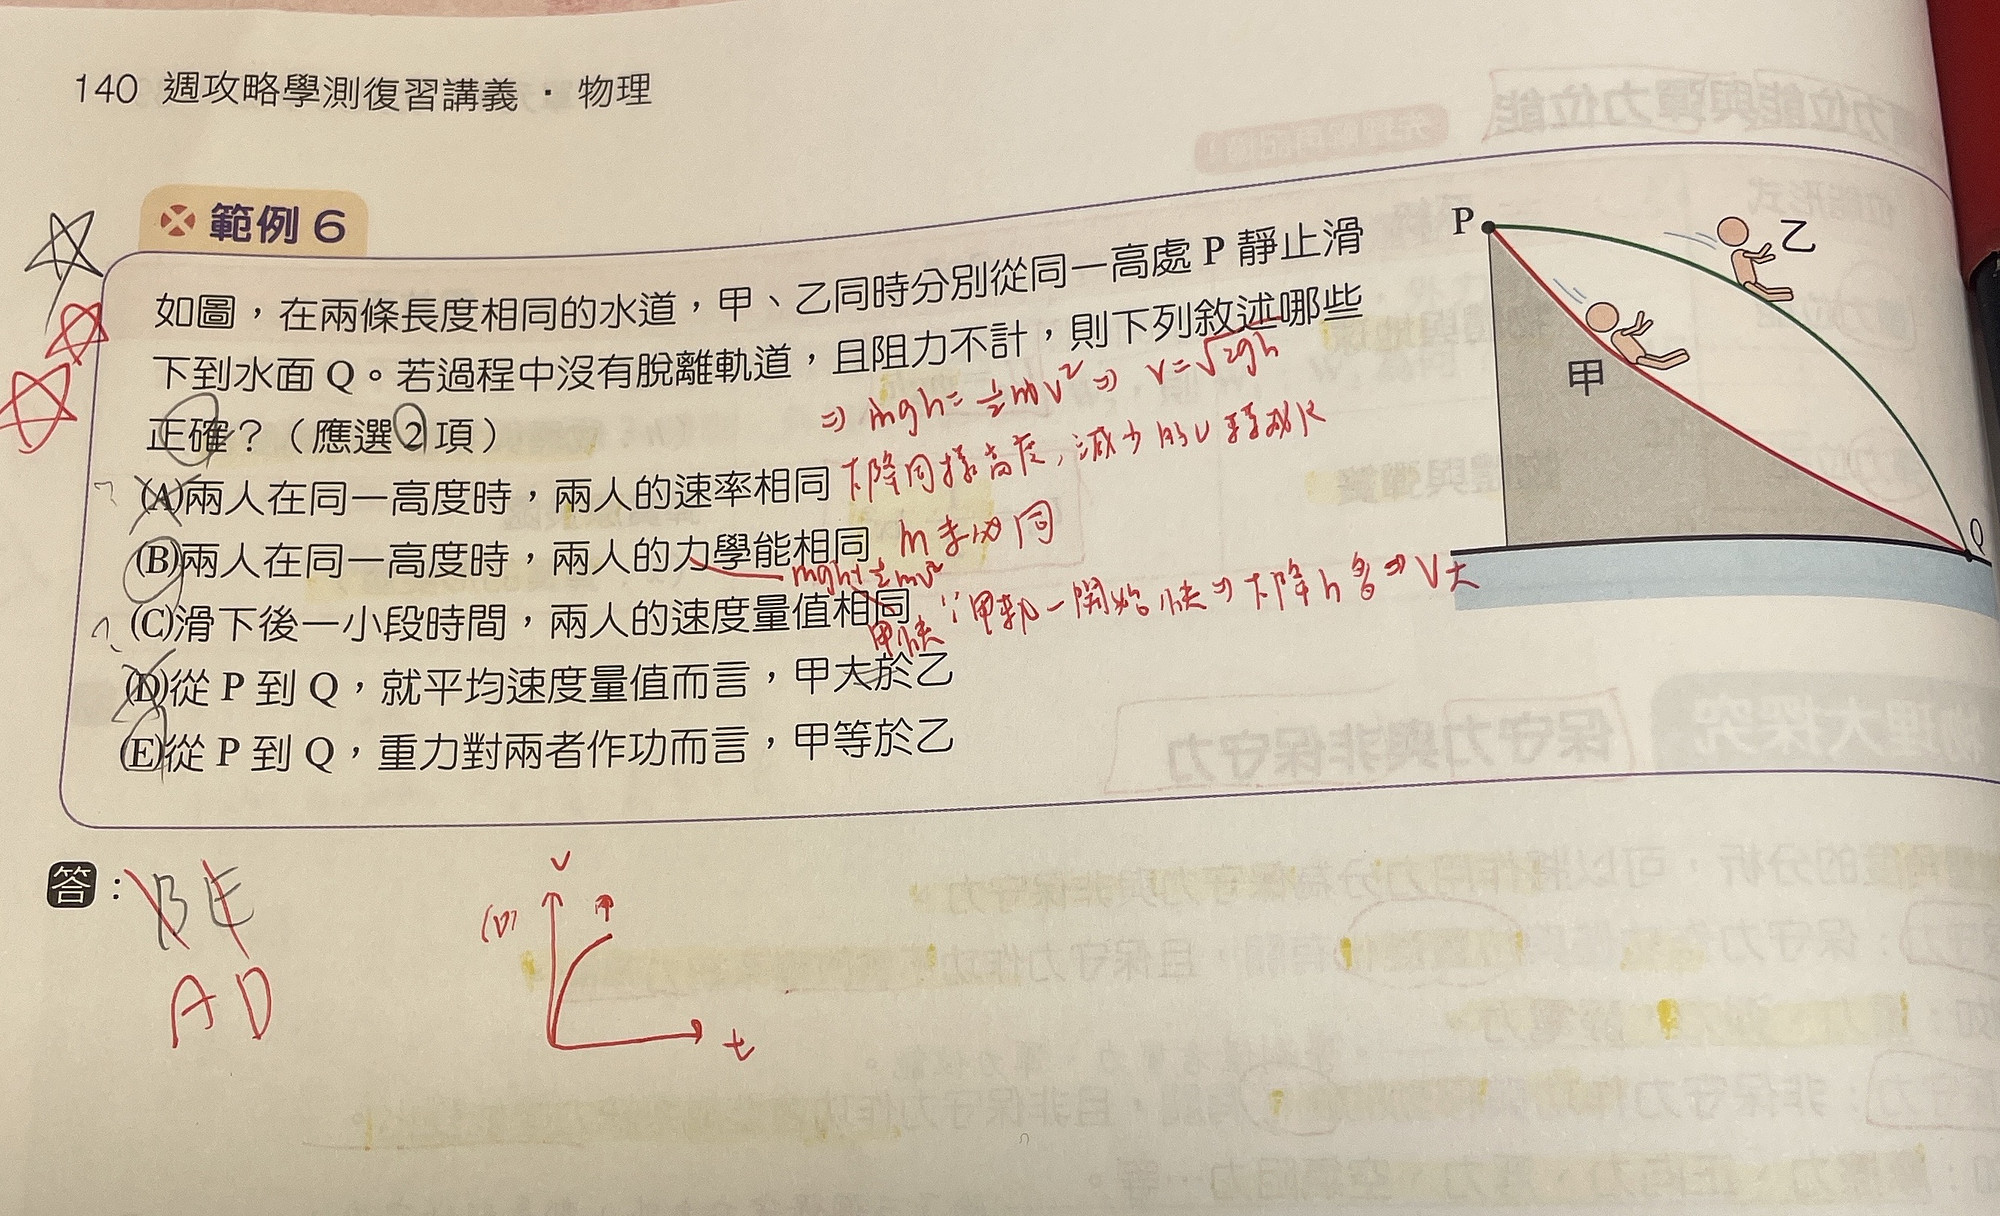 140 週攻略學測復習講義・物理
範例 6
如圖，在兩條長度相同的水道，甲、乙同時分別從同一高處 P 靜止滑
下到水面 Q。若過程中沒有脫離軌道，且阻力不計，則下列敘述哪些
正確？（應選 2 項）
⇒ mgh = ½mv² ⇒ v = √2gh
(A)兩人在同一高度時，兩人的速率相同
下降同樣高度，減少的U轉成K
(B)兩人在同一高度時，兩人的力學能相同
m未必同
mgh+½mv²
(C)滑下後一小段時間，兩人的速度量值相同
甲快 ∵甲軌一開始快⇒下降h多⇒V大
(D)從 P 到 Q，就平均速度量值而言，甲大於乙
(E)從 P 到 Q，重力對兩者作功而言，甲等於乙
P
乙
甲
Q
答：BE
AD
(D)
v
甲
t